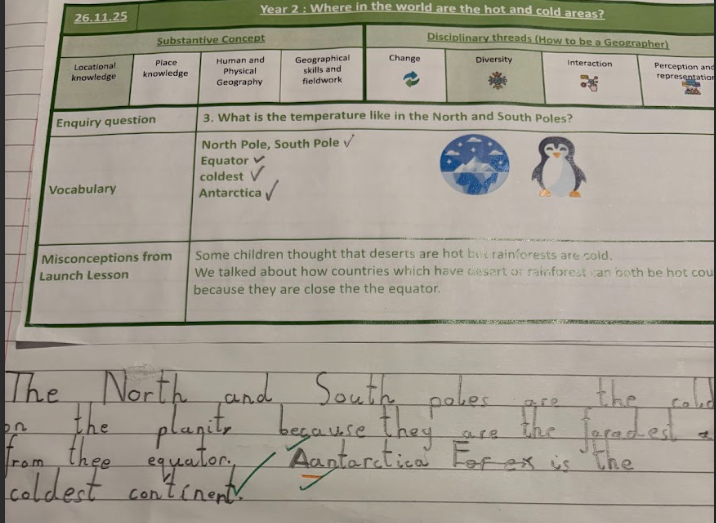 26.11.25
Year 2 : Where in the world are the hot and cold areas?
Substantive Concept
Disciplinary threads (How to be a Geographer)
Locational knowledge
Place knowledge
Human and Physical Geography
Geographical skills and fieldwork
Change
Diversity
Interaction
Perception and representation
Enquiry question
3. What is the temperature like in the North and South Poles?
Vocabulary
North Pole, South Pole
Equator
coldest
Antarctica
Misconceptions from Launch Lesson
Some children thought that deserts are hot but rainforests are cold.
We talked about how countries which have desert or rainforest can both be hot cou
because they are close the the equator.
The North and South poles are the cold
on the planit, because they are the faradest a
from thee equator. Aantarctica For ex is the
coldest continent.